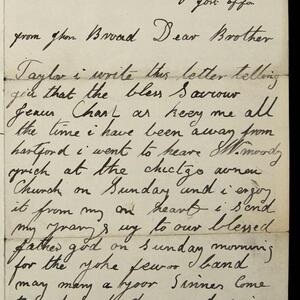 from Jhon Broad Dear Brother
Taylor i write this letter telling
you that the bless Saviour
Jesus Chart as keep me all
the time i have been away from
hartford i went to heare Mr moody
prich at the chicego avenew
Church on Sunday and i enjoy
it from my on heart i send
my prayrs up to our blessed
father god on Sunday morning
for the yoke fewor band
may many a poor Sinner Come